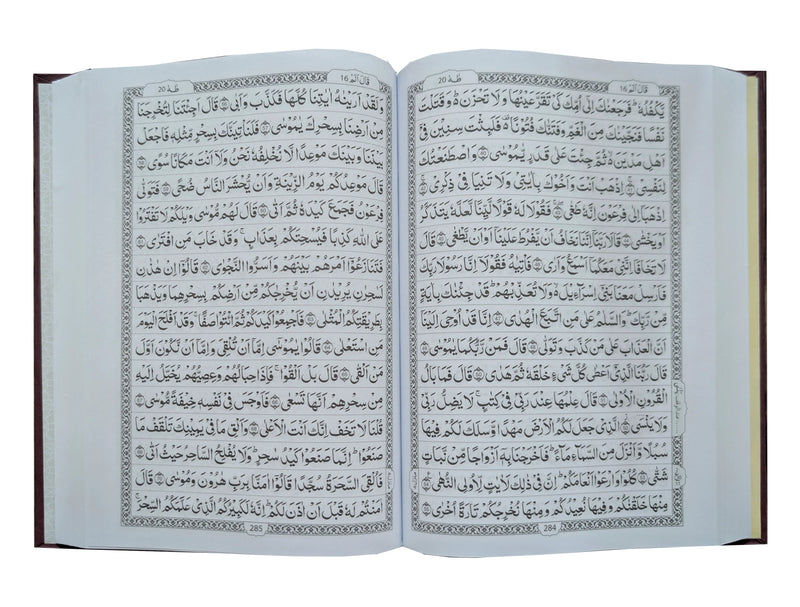 قَالَ اَلَمْ 16
طٰهٰ 20
يَّكْفُلُهٗ ؕ فَرَجَعْنٰكَ اِلٰٓى اُمِّكَ كَىْ تَقَرَّ عَيْنُهَا وَلَا تَحْزَنَ ؕ وَقَتَلْتَ
نَفْسًا فَنَجَّيْنٰكَ مِنَ الْغَمِّ وَفَتَنّٰكَ فُتُوْنًا ۫ فَلَبِثْتَ سِنِيْنَ فِىْٓ
اَهْلِ مَدْيَنَ ۙ ثُمَّ جِئْتَ عَلٰى قَدَرٍ يّٰمُوْسٰى ۝ وَاصْطَنَعْتُكَ
لِنَفْسِىْ ۝ اِذْهَبْ اَنْتَ وَاَخُوْكَ بِاٰيٰتِىْ وَلَا تَنِيَا فِىْ ذِكْرِىْ ۝
اِذْهَبَاۤ اِلٰى فِرْعَوْنَ اِنَّهٗ طَغٰى ۝ فَقُوْلَا لَهٗ قَوْلًا لَّيِّنًا لَّعَلَّهٗ يَتَذَكَّرُ
اَوْ يَخْشٰى ۝ قَالَا رَبَّنَاۤ اِنَّنَا نَخَافُ اَنْ يَّفْرُطَ عَلَيْنَاۤ اَوْ اَنْ يَّطْغٰى ۝ قَالَ
لَا تَخَافَاۤ اِنَّنِىْ مَعَكُمَاۤ اَسْمَعُ وَاَرٰى ۝ فَاْتِيٰهُ فَقُوْلَاۤ اِنَّا رَسُوْلَا رَبِّكَ
فَاَرْسِلْ مَعَنَا بَنِىْۤ اِسْرَآءِيْلَ ۙ وَلَا تُعَذِّبْهُمْ ؕ قَدْ جِئْنٰكَ بِاٰيَةٍ
مِّنْ رَّبِّكَ ؕ وَالسَّلٰمُ عَلٰى مَنِ اتَّبَعَ الْهُدٰى ۝ اِنَّا قَدْ اُوْحِىَ اِلَيْنَاۤ
اَنَّ الْعَذَابَ عَلٰى مَنْ كَذَّبَ وَتَوَلّٰى ۝ قَالَ فَمَنْ رَّبُّكُمَا يٰمُوْسٰى ۝
قَالَ رَبُّنَا الَّذِىْۤ اَعْطٰى كُلَّ شَىْءٍ خَلْقَهٗ ثُمَّ هَدٰى ۝ قَالَ فَمَا بَالُ
الْقُرُوْنِ الْاُوْلٰى ۝ قَالَ عِلْمُهَا عِنْدَ رَبِّىْ فِىْ كِتٰبٍ ۚ لَا يَضِلُّ رَبِّىْ
وَلَا يَنْسَى ۝ الَّذِىْ جَعَلَ لَكُمُ الْاَرْضَ مَهْدًا وَّسَلَكَ لَكُمْ فِيْهَا
سُبُلًا وَّاَنْزَلَ مِنَ السَّمَآءِ مَآءً ؕ فَاَخْرَجْنَا بِهٖۤ اَزْوَاجًا مِّنْ نَّبَاتٍ
شَتّٰى ۝ كُلُوْا وَارْعَوْا اَنْعَامَكُمْ ؕ اِنَّ فِىْ ذٰلِكَ لَاٰيٰتٍ لِّاُولِى النُّهٰى ۝
مِنْهَا خَلَقْنٰكُمْ وَفِيْهَا نُعِيْدُكُمْ وَمِنْهَا نُخْرِجُكُمْ تَارَةً اُخْرٰى ۝
284
قَالَ اَلَمْ 16
طٰهٰ 20
وَلَقَدْ اَرَيْنٰهُ اٰيٰتِنَا كُلَّهَا فَكَذَّبَ وَاَبٰى ۝ قَالَ اَجِئْتَنَا لِتُخْرِجَنَا
مِنْ اَرْضِنَا بِسِحْرِكَ يٰمُوْسٰى ۝ فَلَنَاْتِيَنَّكَ بِسِحْرٍ مِّثْلِهٖ فَاجْعَلْ
بَيْنَنَا وَبَيْنَكَ مَوْعِدًا لَّا نُخْلِفُهٗ نَحْنُ وَلَاۤ اَنْتَ مَكَانًا سُوًى ۝
قَالَ مَوْعِدُكُمْ يَوْمُ الزِّيْنَةِ وَاَنْ يُّحْشَرَ النَّاسُ ضُحًى ۝ فَتَوَلّٰى
فِرْعَوْنُ فَجَمَعَ كَيْدَهٗ ثُمَّ اَتٰى ۝ قَالَ لَهُمْ مُّوْسٰى وَيْلَكُمْ لَا تَفْتَرُوْا
عَلَى اللّٰهِ كَذِبًا فَيُسْحِتَكُمْ بِعَذَابٍ ۚ وَقَدْ خَابَ مَنِ افْتَرٰى ۝
فَتَنَازَعُوْۤا اَمْرَهُمْ بَيْنَهُمْ وَاَسَرُّوا النَّجْوٰى ۝ قَالُوْۤا اِنْ هٰذٰنِ
لَسٰحِرٰنِ يُرِيْدٰنِ اَنْ يُّخْرِجٰكُمْ مِّنْ اَرْضِكُمْ بِسِحْرِهِمَا وَيَذْهَبَا
بِطَرِيْقَتِكُمُ الْمُثْلٰى ۝ فَاَجْمِعُوْا كَيْدَكُمْ ثُمَّ ائْتُوْا صَفًّا ۚ وَقَدْ اَفْلَحَ الْيَوْمَ
مَنِ اسْتَعْلٰى ۝ قَالُوْا يٰمُوْسٰۤى اِمَّاۤ اَنْ تُلْقِىَ وَاِمَّاۤ اَنْ نَّكُوْنَ اَوَّلَ
مَنْ اَلْقٰى ۝ قَالَ بَلْ اَلْقُوْا ۚ فَاِذَا حِبَالُهُمْ وَعِصِيُّهُمْ يُخَيَّلُ اِلَيْهِ
مِنْ سِحْرِهِمْ اَنَّهَا تَسْعٰى ۝ فَاَوْجَسَ فِىْ نَفْسِهٖ خِيْفَةً مُّوْسٰى ۝
قُلْنَا لَا تَخَفْ اِنَّكَ اَنْتَ الْاَعْلٰى ۝ وَاَلْقِ مَا فِىْ يَمِيْنِكَ تَلْقَفْ مَا
صَنَعُوْا ؕ اِنَّمَا صَنَعُوْا كَيْدُ سٰحِرٍ ؕ وَلَا يُفْلِحُ السَّاحِرُ حَيْثُ اَتٰى ۝
فَاُلْقِىَ السَّحَرَةُ سُجَّدًا قَالُوْۤا اٰمَنَّا بِرَبِّ هٰرُوْنَ وَمُوْسٰى ۝ قَالَ
اٰمَنْتُمْ لَهٗ قَبْلَ اَنْ اٰذَنَ لَكُمْ ؕ اِنَّهٗ لَكَبِيْرُكُمُ الَّذِىْ عَلَّمَكُمُ السِّحْرَ ۚ
285